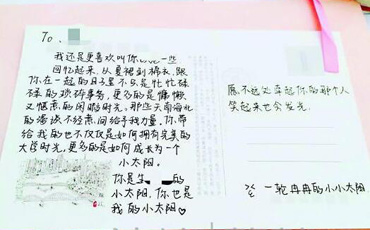 To、
我还是更喜欢叫你 一些
回忆起来，从夏裙到棉衣，跟
你在一起的日子里不只是忙忙碌
碌的琐碎事务，更多的是慵懒
又惬意的闲暇时光。那些天南海北
的漫谈不经意间给予我力量。你带
给我的也不仅仅是如何拥有完美的
大学时光，更多的是如何成长为一个
小太阳。
你是生 的
小太阳，你也是
我的小太阳♡
愿不远处牵起你的那个人
笑起来也会发光
一轮冉冉的小小太阳